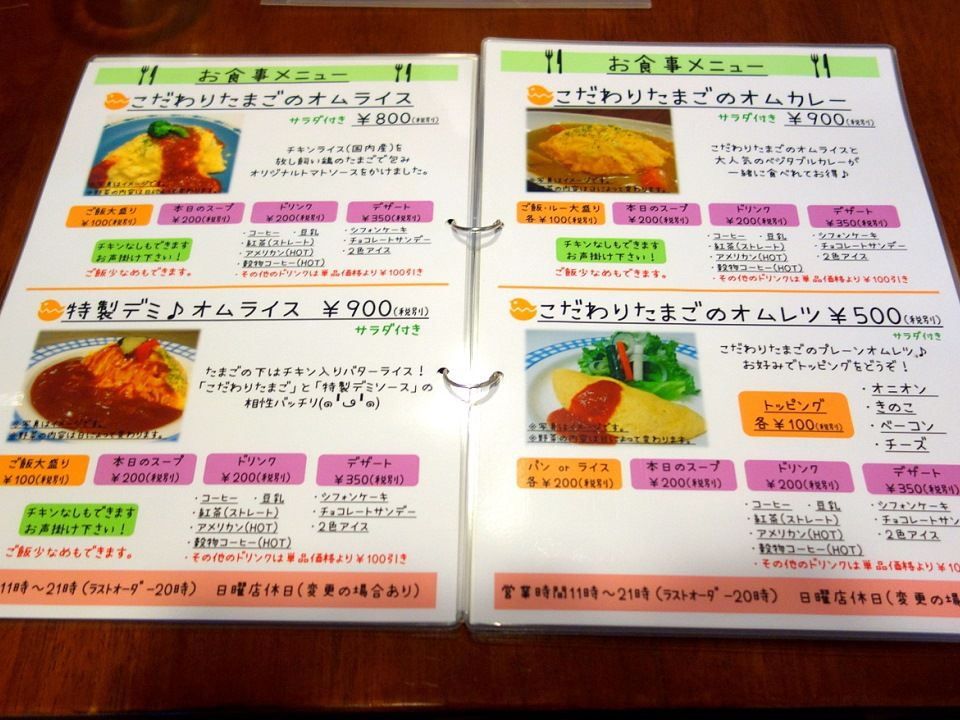 お食事メニュー
こだわりたまごのオムライス
サラダ付き ￥800(税別)
チキンライス(国内産)を
放し飼い鶏のたまごで包み
オリジナルトマトソースをかけました。
※写真はイメージです。
※野菜の内容は日によって変わります。
ご飯大盛り
￥100(税別)
本日のスープ
￥200(税別)
ドリンク
￥200(税別)
デザート
￥350(税別)
・コーヒー ・豆乳
・紅茶(ストレート)
・アメリカン(HOT)
・穀物コーヒー(HOT)
・シフォンケーキ
・チョコレートサンデー
・2色アイス
チキンなしもできます
お声掛け下さい！
ご飯少なめもできます。
・その他のドリンクは単品価格より￥100引き
特製デミ♪オムライス ￥900(税別)
サラダ付き
たまごの下はチキン入りバターライス！
「こだわりたまご」と「特製デミソース」の
相性バッチリ(๑╹ڡ╹๑)
※写真はイメージです。
※野菜の内容は日によって変わります。
ご飯大盛り
￥100(税別)
本日のスープ
￥200(税別)
ドリンク
￥200(税別)
デザート
￥350(税別)
・コーヒー ・豆乳
・紅茶(ストレート)
・アメリカン(HOT)
・穀物コーヒー(HOT)
・シフォンケーキ
・チョコレートサンデー
・2色アイス
チキンなしもできます
お声掛け下さい！
ご飯少なめもできます。
・その他のドリンクは単品価格より￥100引き
11時～21時(ラストオーダー20時) 日曜店休日(変更の場合あり)
お食事メニュー
こだわりたまごのオムカレー
サラダ付き ￥900(税別)
こだわりたまごのオムライスと
大人気のベジタブルカレーが
一緒に食べれてお得♪
※写真はイメージです。
※野菜の内容は日によって変わります。
ご飯・ルー大盛り
各￥100(税別)
本日のスープ
￥200(税別)
ドリンク
￥200(税別)
デザート
￥350(税別)
・コーヒー ・豆乳
・紅茶(ストレート)
・アメリカン(HOT)
・穀物コーヒー(HOT)
・シフォンケーキ
・チョコレートサンデー
・2色アイス
チキンなしもできます
お声掛け下さい！
ご飯少なめもできます。
・その他のドリンクは単品価格より￥100引き
こだわりたまごのオムレツ￥500(税別)
サラダ付き
こだわりたまごのプレーンオムレツ♪
お好みでトッピングをどうぞ！
トッピング
各￥100(税別)
・オニオン
・きのこ
・ベーコン
・チーズ
※写真はイメージです。
※野菜の内容は日によって変わります。
パン or ライス
各￥200(税別)
本日のスープ
￥200(税別)
ドリンク
￥200(税別)
デザート
￥350(税別)
・コーヒー ・豆乳
・紅茶(ストレート)
・アメリカン(HOT)
・穀物コーヒー(HOT)
・シフォンケーキ
・チョコレートサンデー
・2色アイス
・その他のドリンクは単品価格より￥10
営業時間11時～21時(ラストオーダー20時) 日曜店休日(変更の場